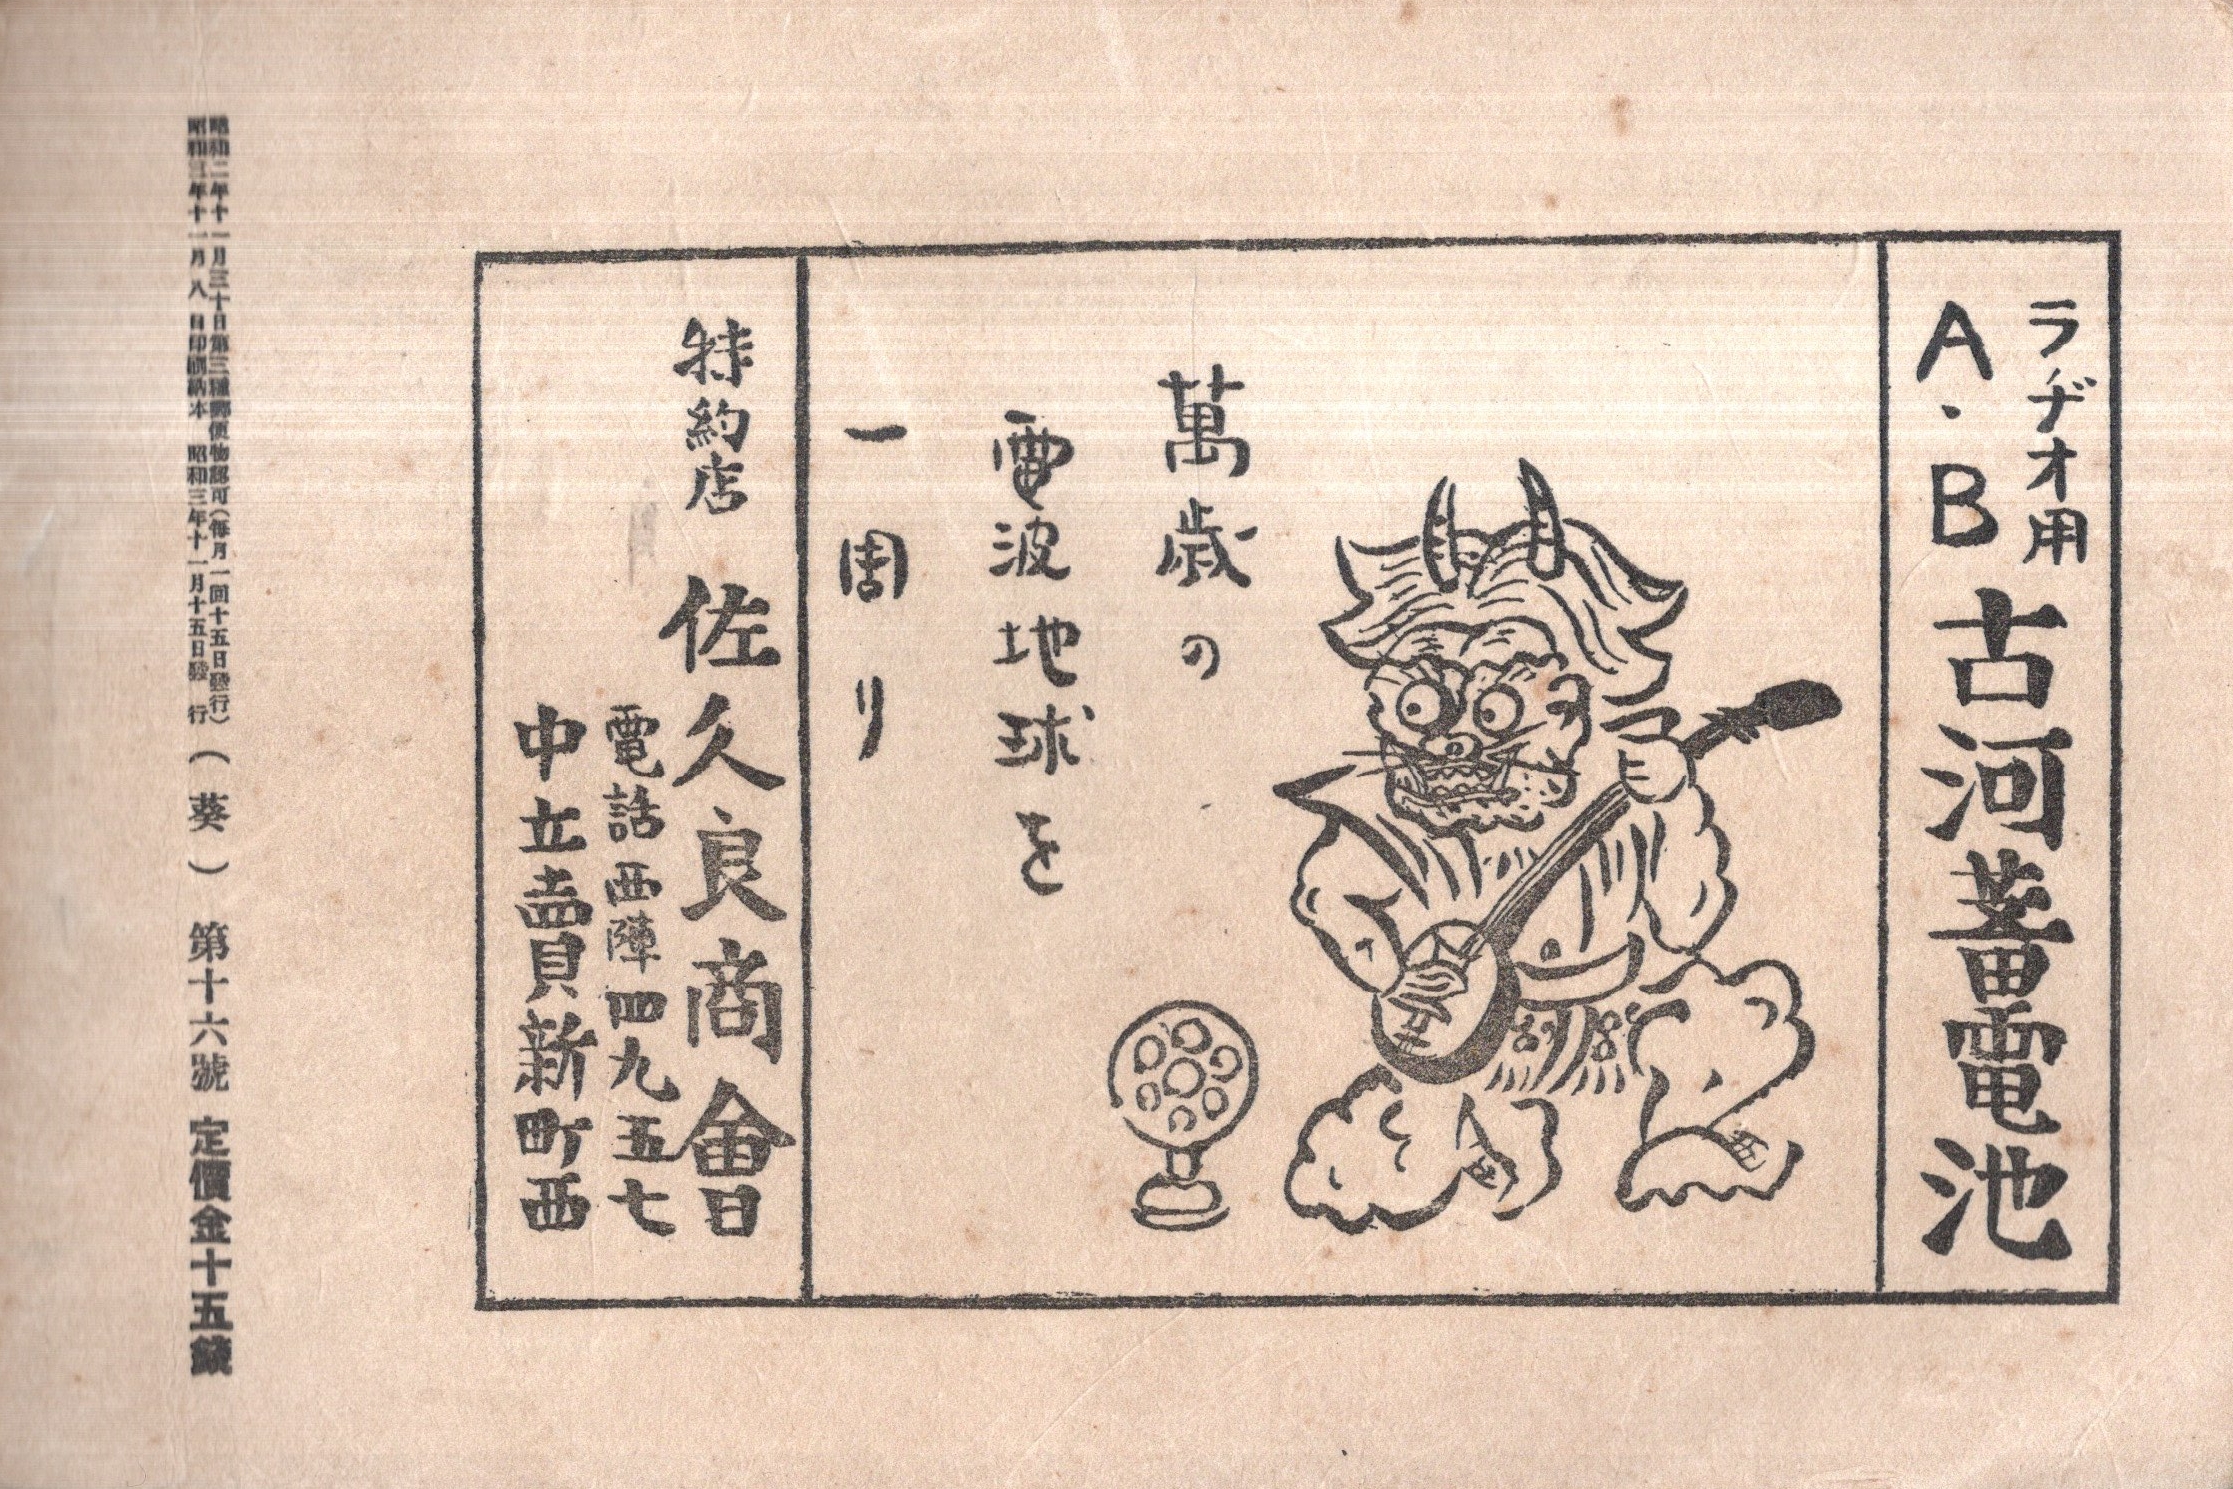 ラヂオ用
A・B 古河蓄電池
萬歳の
電波地球を
一周り
特約店 佐久良商會
電話西陣四九五七
中立賣新町西
昭和二年十一月三十日第三種郵便物認可（毎月一回十五日發行）
昭和三年十一月八日印刷納本 昭和三年十一月十五日發行（葵）第十六號 定價金十五錢